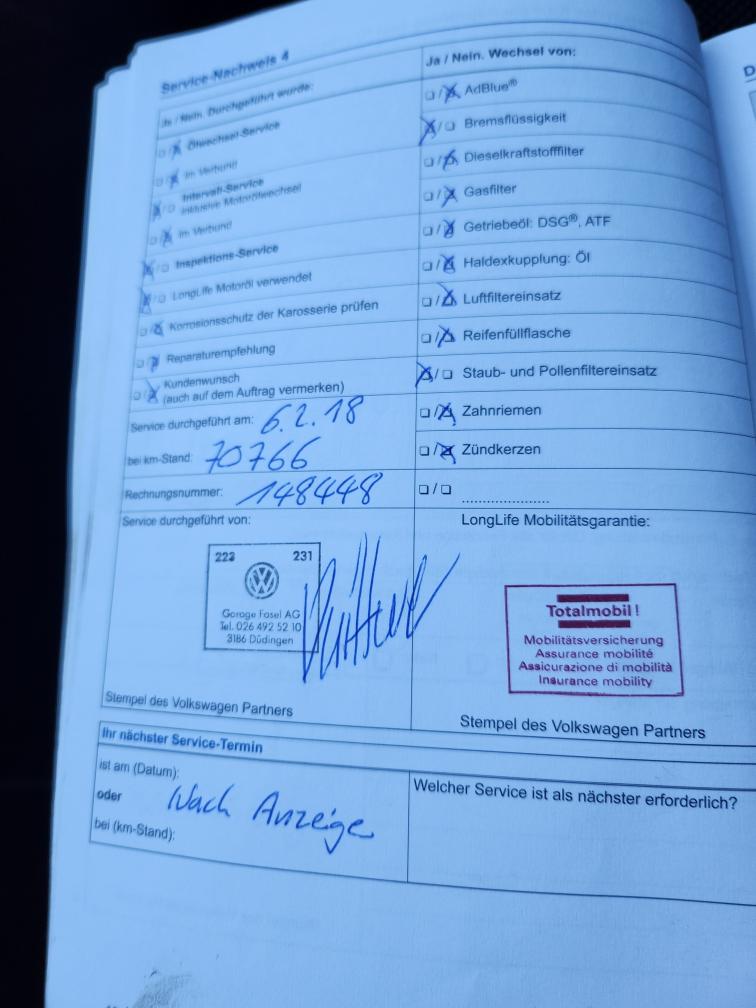 Service-Nachweis 4
Ja / Nein. Durchgeführt wurde:
Ölwechsel-Service
im Verbund
Intervall-Service
inklusive Motorölwechsel
im Verbund
Inspektions-Service
LongLife Motoröl verwendet
Korrosionsschutz der Karosserie prüfen
Reparaturempfehlung
Kundenwunsch
(auch auf dem Auftrag vermerken)
Service durchgeführt am: 6.2.18
bei km-Stand: 70766
Rechnungsnummer: 148448
Service durchgeführt von:
223 231
Garage Fasel AG
Tel. 026 492 52 10
3186 Düdingen
Stempel des Volkswagen Partners
Ja / Nein. Wechsel von:
AdBlue®
Bremsflüssigkeit
Dieselkraftstofffilter
Gasfilter
Getriebeöl: DSG®, ATF
Haldexkupplung: Öl
Luftfiltereinsatz
Reifenfüllflasche
Staub- und Pollenfiltereinsatz
Zahnriemen
Zündkerzen
LongLife Mobilitätsgarantie:
Totalmobil!
Mobilitätsversicherung
Assurance mobilité
Assicurazione di mobilità
Insurance mobility
Stempel des Volkswagen Partners
Ihr nächster Service-Termin
ist am (Datum):
oder Nach Anzeige
bei (km-Stand):
Welcher Service ist als nächster erforderlich?
D